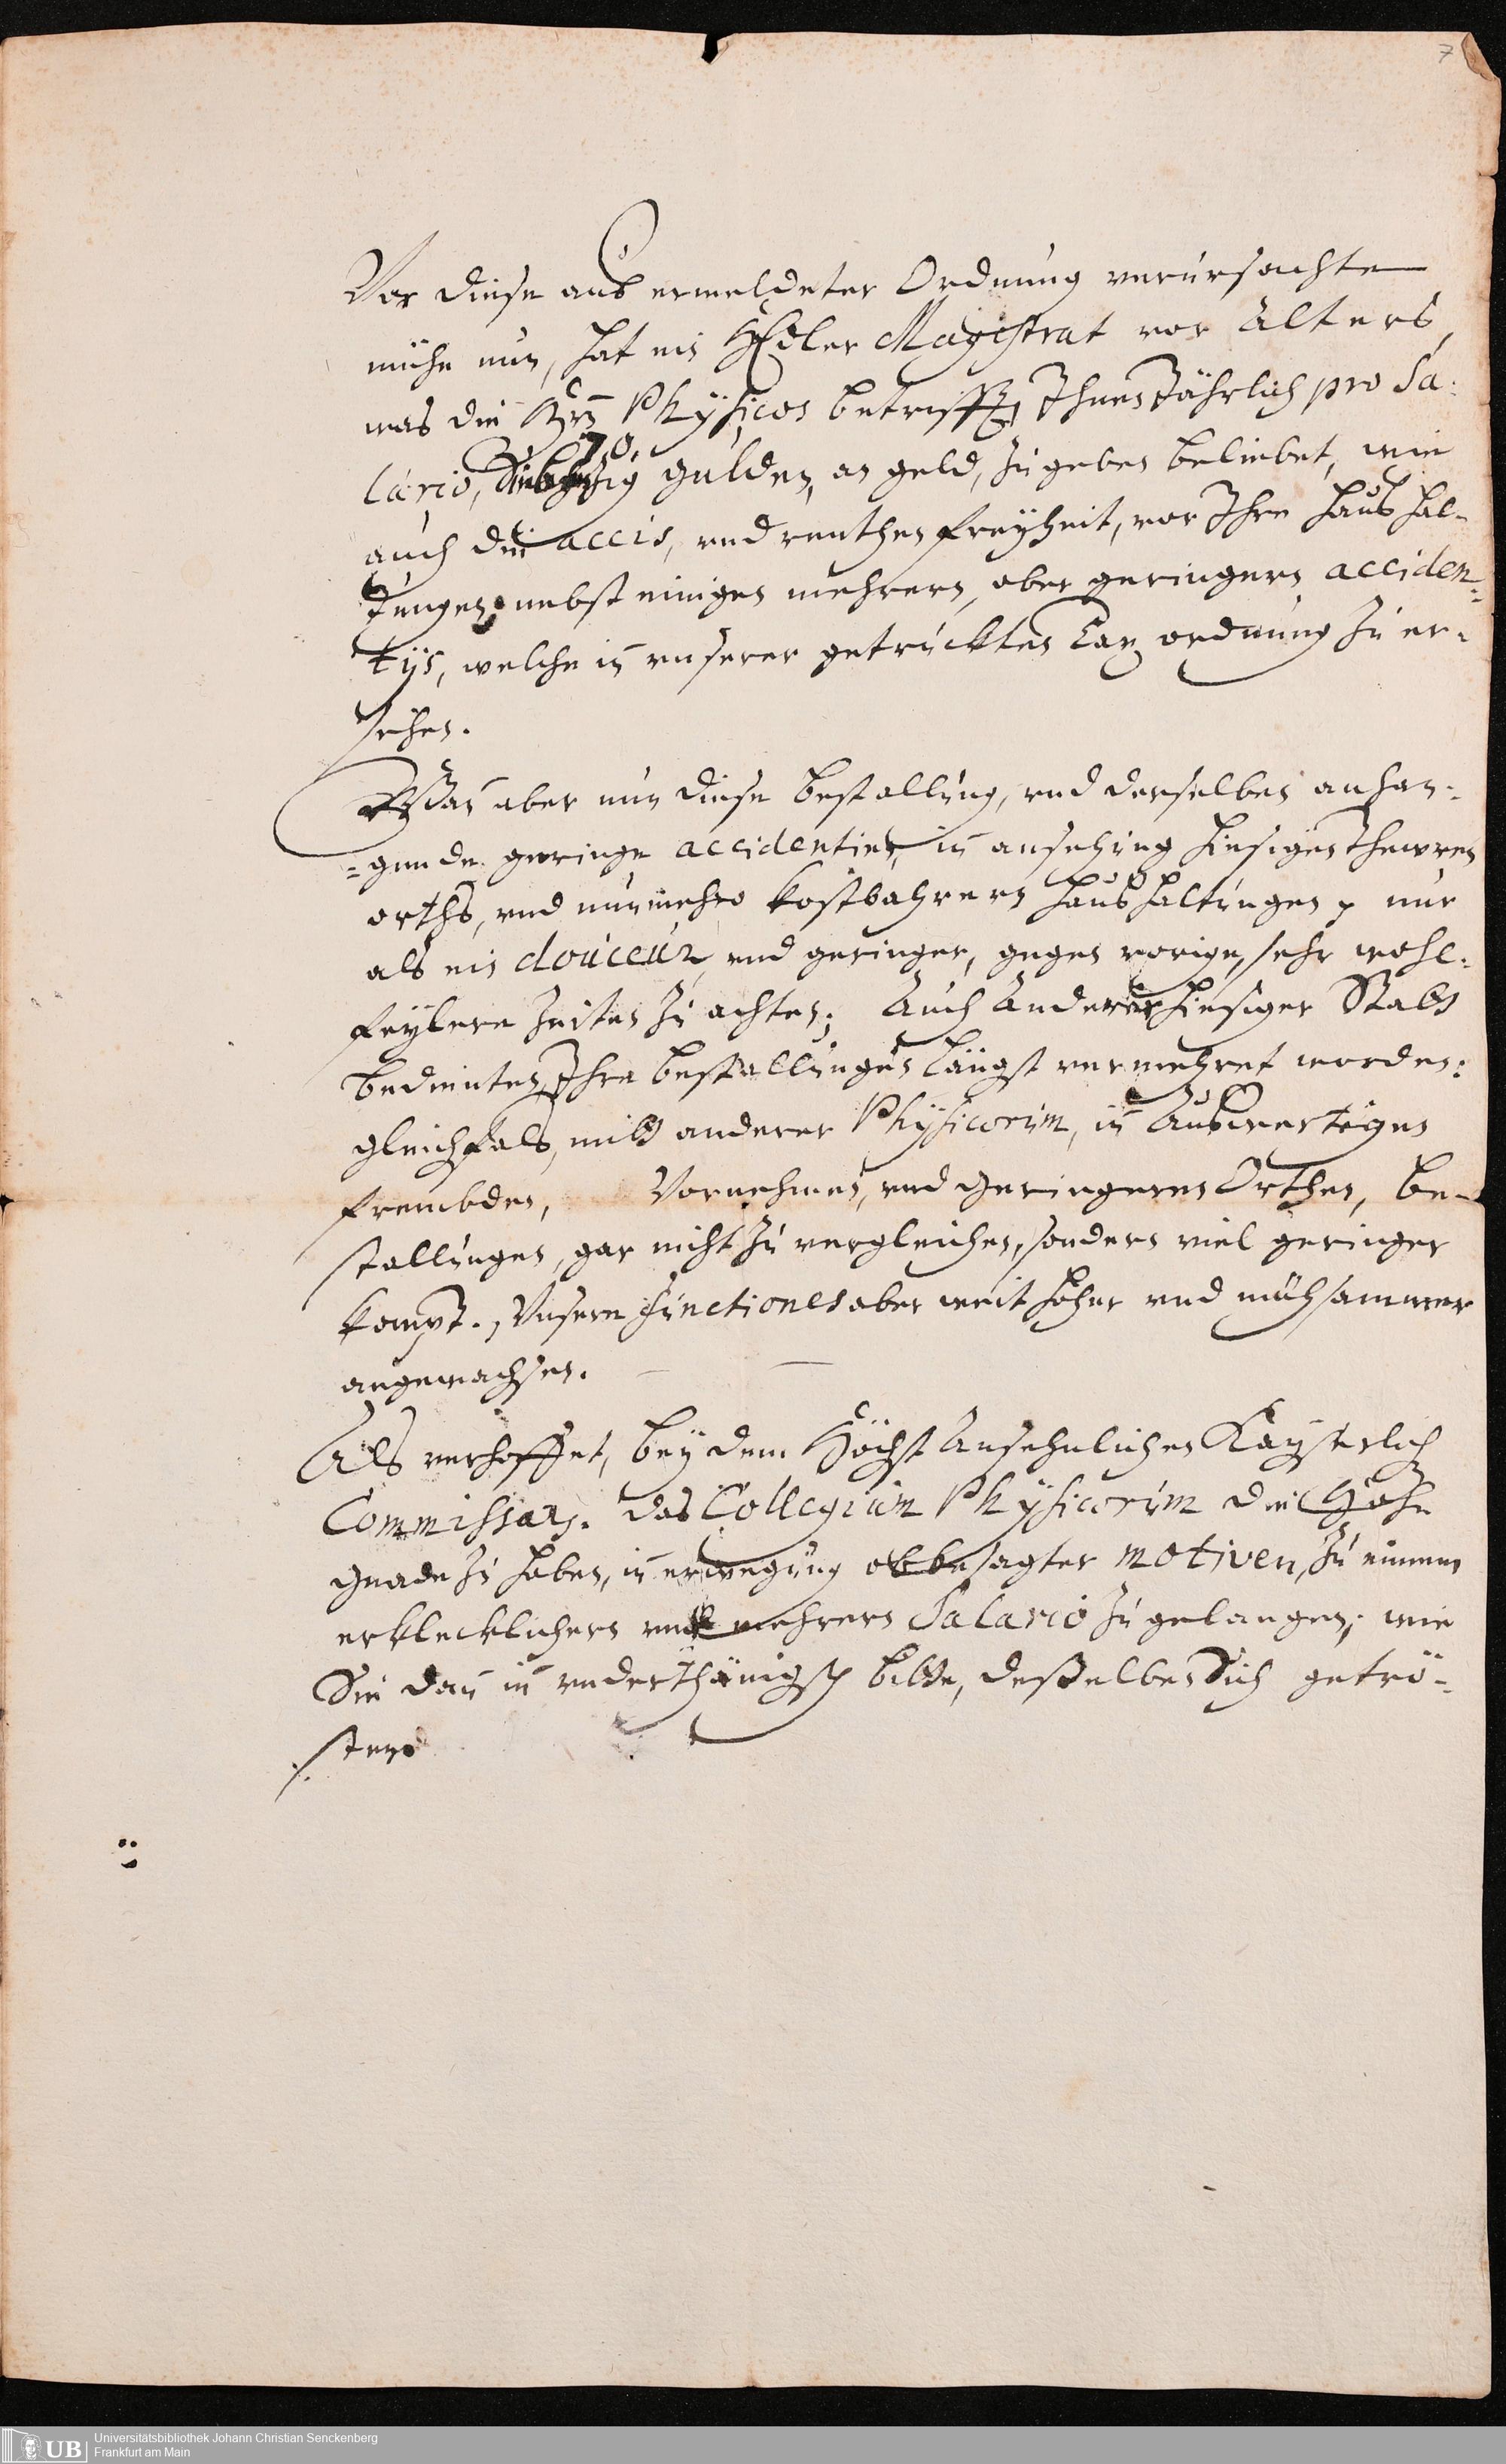 7
Vor diese aus ermeldeter Ordnung verursachte
mühe nun, hat ein HEdler Magistrat vor Alters,
was die Hrn Physicos betrifft, Ihnen Jährlich pro Sa-
70.
lario, Siebenzig gulden, an geld, zu geben beliebet, wie
auch die accis, und renthen freyheit, vor Ihre haushal-
tungen, nebst einigen mehrern, aber geringern acciden-
tijs, welche in unserer getruckten Tax ordnung zu er-
sehen.
Wan aber nun diese bestallung, und derselben anhan-
=gende geringe accidentien, in ansehung hiesigen Thewren
orths, und nunmehro kostbahrern haushaltungen, nur
als ein douceur, und geringer, gegen vorige, sehr wohl-
feylere Zeiten zu achten; Auch Anderer hiesiger Statt
bedienten, Ihre bestallungen längst vermehret worden:
gleichfals, mitt anderer Physicorum, in Auswertigen
frembden, Vornehmen, und geringeren Orthen, be-
stallungen, gar nicht zu vergleichen, sondern viel geringer
kompt., Unsere functiones aber weit höher und mühsammer
angewachsen.
Als verhoffet, bey dem Höchst Ansehnlichen Kayserlich
Commissar. das Collegium Physicorum die Hohe
gnade zu haben, in erwegung obbesagter motiven, zu einem
erklecklichern und mehrern Salario zu gelangen; wie
Sie dan in underthänigst bitte, deßelben Sich getrö-
sten.
UB
Universitätsbibliothek Johann Christian Senckenberg
Frankfurt am Main